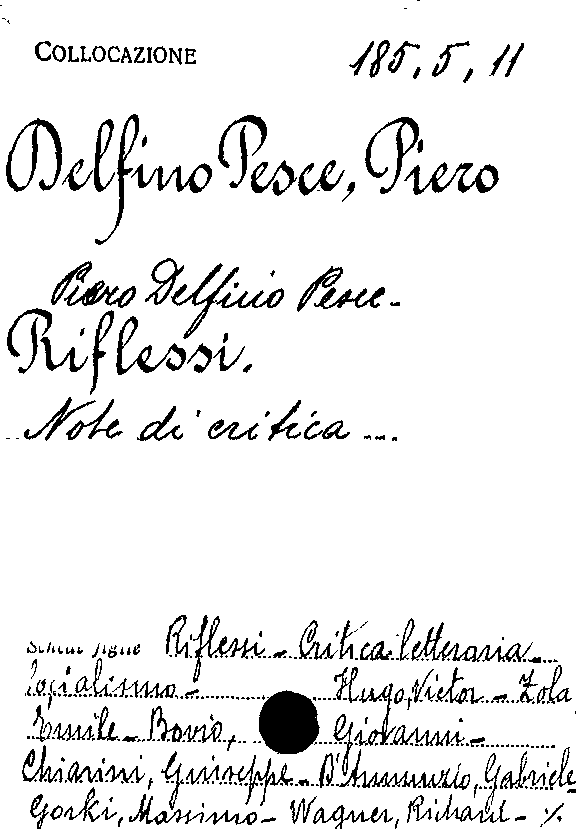 COLLOCAZIONE 185, 5, 11
Delfino Pesce, Piero
Piero Delfino Pesce -
Riflessi.
Note di critica ...
Riflessi - Critica letteraria -
Socialismo - Hugo, Victor - Zola
Emile - Bovio, Giovanni -
Chiarini, Guiseppe - D'Annunzio, Gabriele
Gorki, Massimo - Wagner, Richard - ·/.